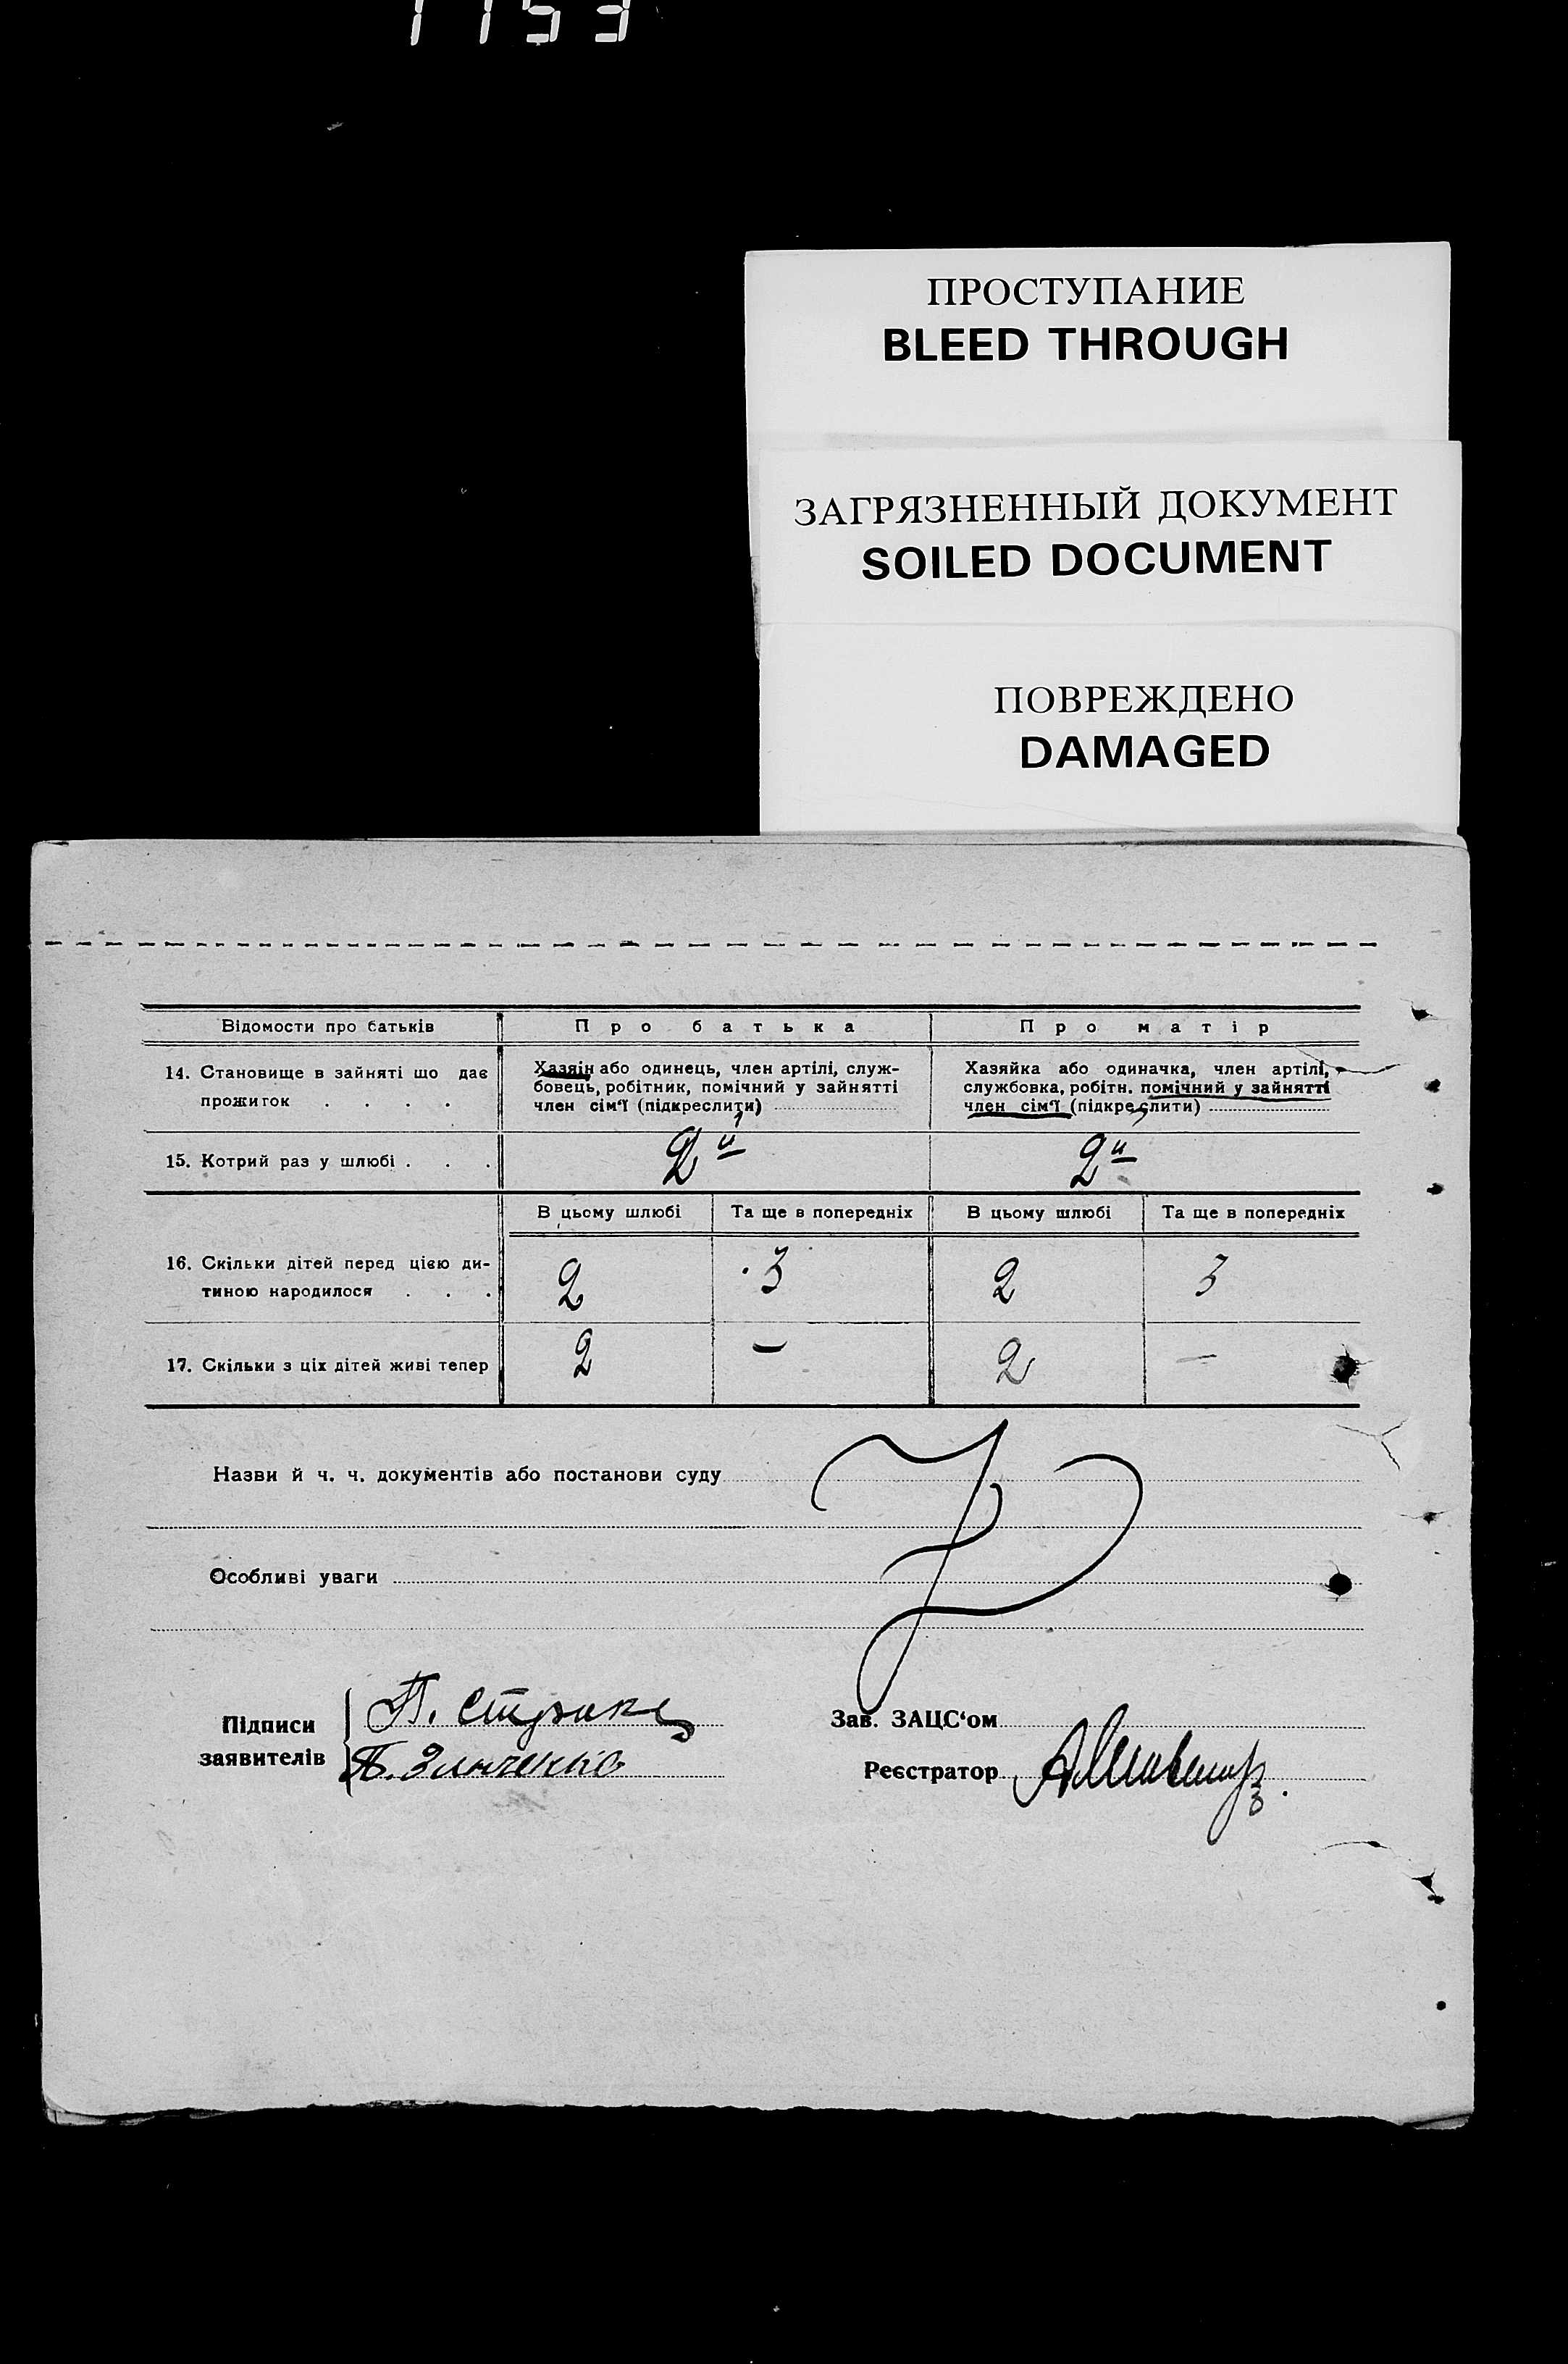 1153
ПРОСТУПАНИЕ
BLEED THROUGH
ЗАГРЯЗНЕННЫЙ ДОКУМЕНТ
SOILED DOCUMENT
ПОВРЕЖДЕНО
DAMAGED
Відомости про батьків
Про батька
Про матір
14. Становище в зайняті що дає
прожиток . . . .
Хазяїн або одинець, член артілі, служ-
бовець, робітник, помічний у зайнятті
член сім'ї (підкреслити)
Хазяйка або одиначка, член артілі,
службовка, робітн. помічний у зайнятті
член сім'ї (підкреслити)
15. Котрий раз у шлюбі . . .
2й
2й
В цьому шлюбі
Та ще в попередніх
В цьому шлюбі
Та ще в попередніх
16. Скільки дітей перед цією ди-
тиною народилося . . .
2
3
2
3
17. Скільки з ціх дітей живі тепер
2
—
2
—
Назви й ч. ч. документів або постанови суду
Особливі уваги
Підписи
заявителів
П.
Зінченко
Зав. ЗАЦС'ом
Реєстратор